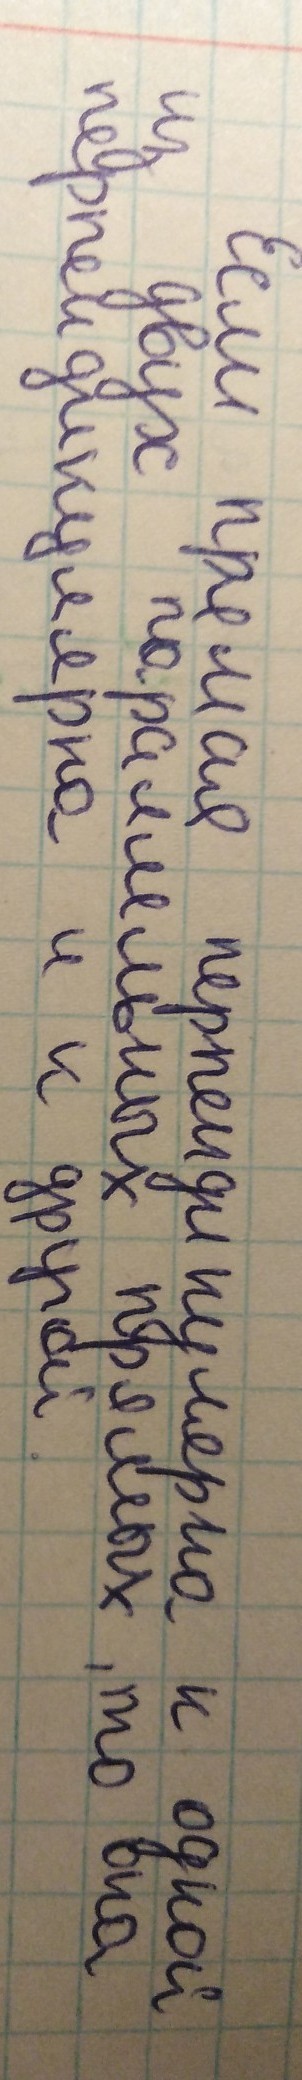 Если прямая перпендикулярна к одной
из двух параллельных прямых, то она
перпендикулярна и к другой.